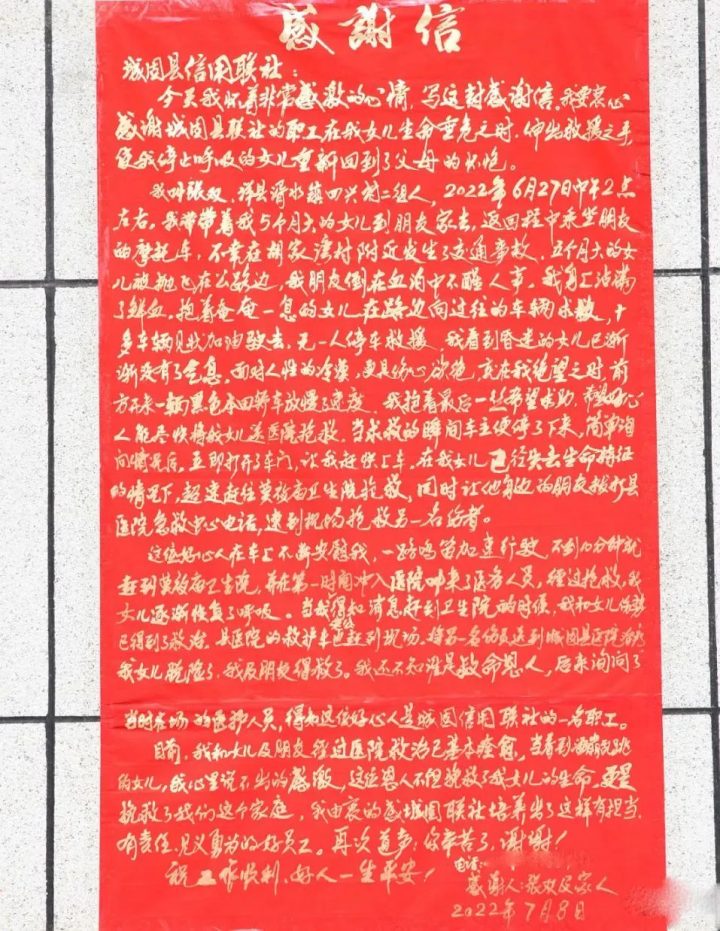 感謝信
城固县信用联社：
今天我怀着非常感激的心情，写这封感谢信，我要衷心
感谢城固县联社的职工在我女儿生命垂危之时，伸出救援之手
使我停止呼吸的女儿重新回到了父母的怀抱。
我叫张双，洋县溢水镇四兴村二组人，2022年6月27日中午2点
左右，我带带着我5个月大的女儿到朋友家去，返回程中乘坐朋友
的摩托车，不幸在胡家湾村附近发生了交通事故，五个月大的女
儿被抛飞在公路边，我朋友倒在血泊中不醒人事。我身上沾满
了鲜血，抱着奄奄一息的女儿在路边向过往的车辆求救，十
多车辆见此加油驶去，无一人停车救援，我看到昏迷的女儿已渐
渐没有了气息，面对人性的冷漠，更是伤心欲绝，就在我绝望之时，前
方开来一辆黑色本田轿车放慢了速度，我抱着最后一丝希望求助，希望好心
人能尽快将我女儿送医院抢救，当求救的瞬间车主便停了下来，简单询
问情况后，立即打开了车门，让我赶快上车，在我女儿已经失去生命特征
的情况下，超速赶往莫爷庙卫生院抢救，同时让他身边的朋友拨打县
医院急救中心电话，速到现场抢救另一名伤者。
这位好心人在车上不断安慰我，一路鸣笛加速行驶，不到10分钟就
赶到莫爷庙卫生院，并在第一时间冲入医院叫来了医务人员，经过抢救，我
女儿逐渐恢复了呼吸。当我得知消息赶到卫生院的时候，我和女儿
已得到了救治，县医院的救护车也赶到现场，将另一名伤员送到城固县医院
我女儿脱险了，我及朋友得救了。我还不知谁是救命恩人，后来询问了
当时在场的医护人员，得知这位好心人是城固信用联社的一名职工。
目前，我和女儿及朋友经过医院救治已基本痊愈，当看到活蹦乱跳
的女儿，我心里说不出的感激，这位恩人不但挽救了我女儿的生命，更是
挽救了我们这个家庭，我由衷的感城固联社培养出了这样有担当，
有责任，见义勇为的好员工。再次道声：你辛苦了，谢谢！
祝工作顺利，好人一生平安！
电话：
感谢人：张双及家人
2022年7月8日